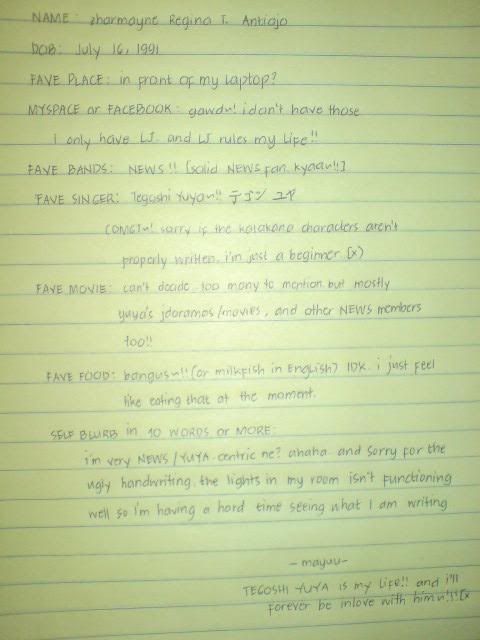 NAME: zharmayne Regina T. Antiojo
DOB: July 16, 1991
FAVE PLACE: in front of my laptop?
MYSPACE or FACEBOOK: gawdu! i don't have those
I only have LJ. and LJ rules my life!!
FAVE BANDS: NEWS!! [solid NEWS fan. kyaau!!]
FAVE SINGER: Tegoshi Yuyau!! テゴシ ユヤ
(OMG!u! sorry if the katakana characters aren't
properly written. i'm just a beginner (x)
FAVE MOVIE: can't decide. too many to mention. but mostly
yuya's jdoramas/movies, and other NEWS members
too!!
FAVE FOOD: bangusu!! (or milkfish in English) IDK. i just feel
like eating that at the moment.
SELF BLURB in 10 WORDS or MORE:
i'm very NEWS/YUYA-centric ne? ahaha. and sorry for the
ugly handwriting. the lights in my room isn't functioning
well so I'm having a hard time seeing what I am writing
-mayuu-
TEGOSHI YUYA is my Life!! and i'll
forever be inlove with himu!!(x